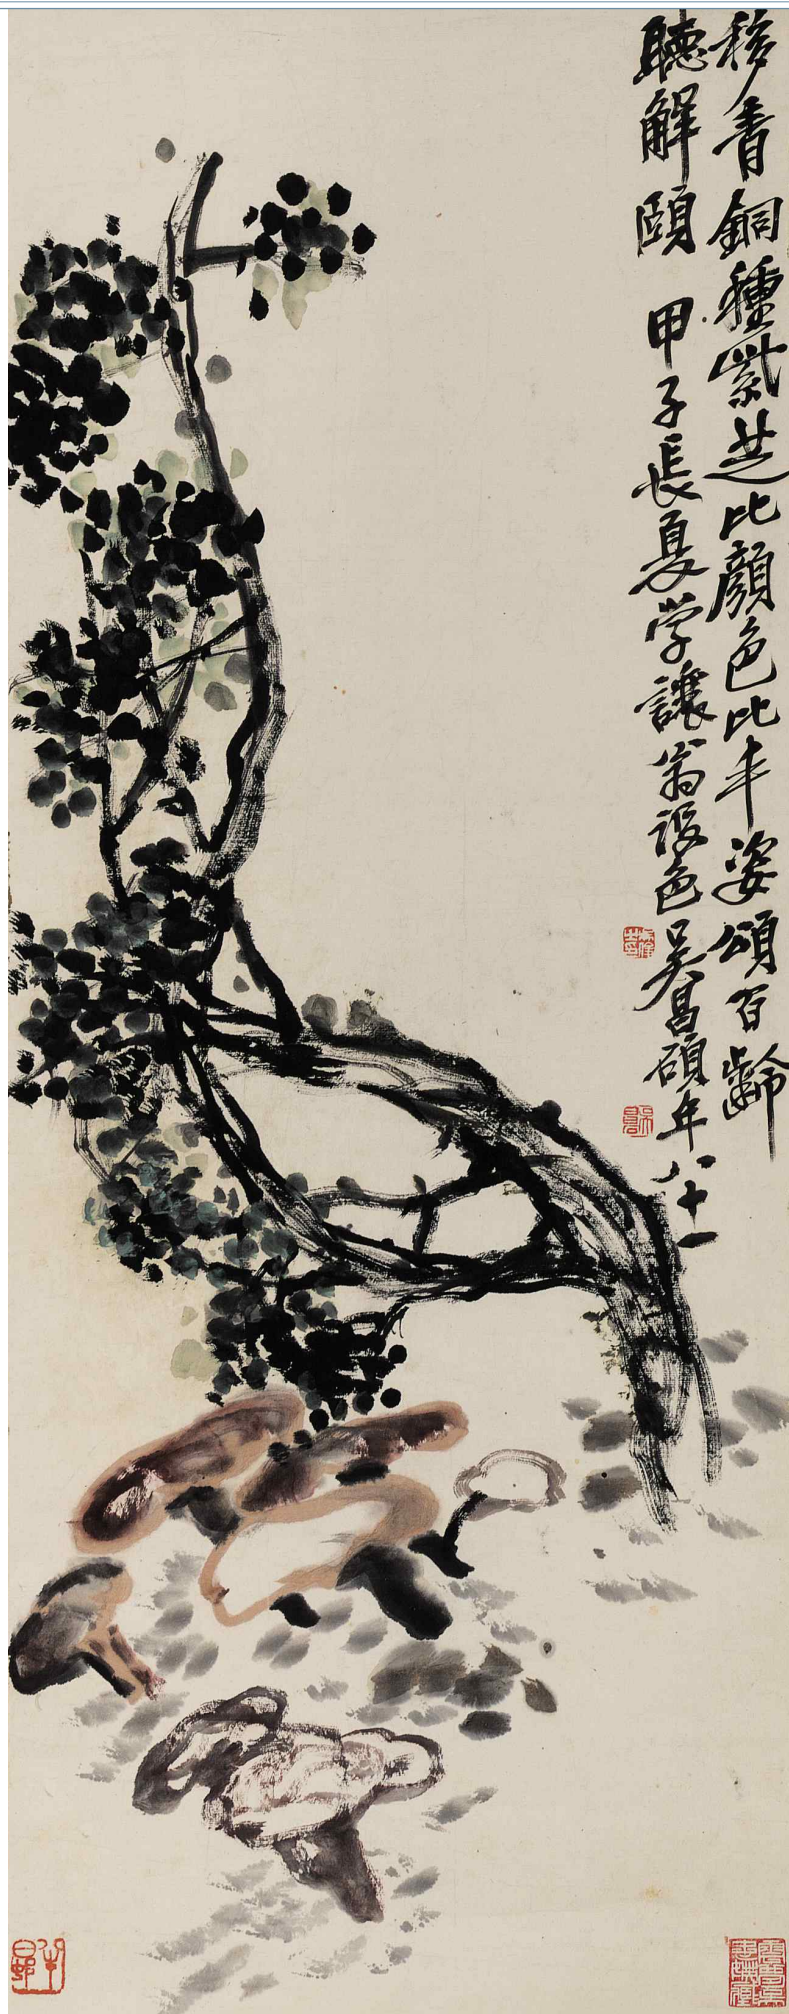 移青銅種紫芝比顏色比丰姿頌百齡
聽解頤 甲子長夏学讓翁設色吴昌碩年八十一